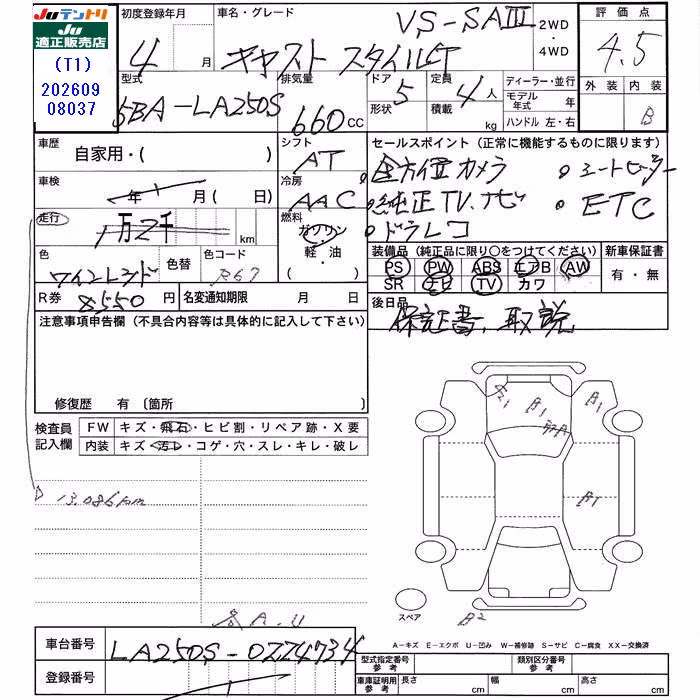 JUテントリ
JU
適正販売店
(T1)
202609
08037
初度登録年月
4 月
車名・グレード
VS-SAⅢ
キャスト スタイルG
2WD
・
4WD
評価点
4.5
外装 内装
B
型式
5BA-LA250S
排気量
660 CC
ドア 形状
5
定員 積載
4 人
kg
ディーラー・並行
モデル年式 年
ハンドル 左・右
車歴
自家用・( )
シフト
AT
セールスポイント (正常に機能するものに限ります)
全方位カメラ ・シートヒーター
・純正TV.ナビ ・ETC
・ドラレコ
車検
年 月 ( 日)
冷房
AAC
走行
万 千 km
燃料
ガソリン
・
軽・油
・( )
色
ワインレッド
色替
色コード
R67
装備品 (純正品に限り○をつけてください)
新車保証書
PS PW ABS エアB AW
SR ナビ TV カワ
有・無
R券 8550 円
名変通知期限 月 日
後日品
保証書、取説
注意事項申告欄 (不具合内容等は具体的に記入して下さい)
修復歴 有 〔箇所 〕
検査員
記入欄
FW キズ・飛石・ヒビ割・リペア跡・X要
内装 キズ・汚レ・コゲ・穴・スレ・キレ・破レ
13,086km
B1
B1
B1
B2
スペア
A.U
A-キズ E-エクボ U-凹み W-補修跡 S-サビ C-腐食 XX-交換済
車台番号
LA250S-0224734
登録番号
型式指定番号 参考
類別区分番号 参考
車庫証明用 参考
長さ cm 幅 cm 高さ cm